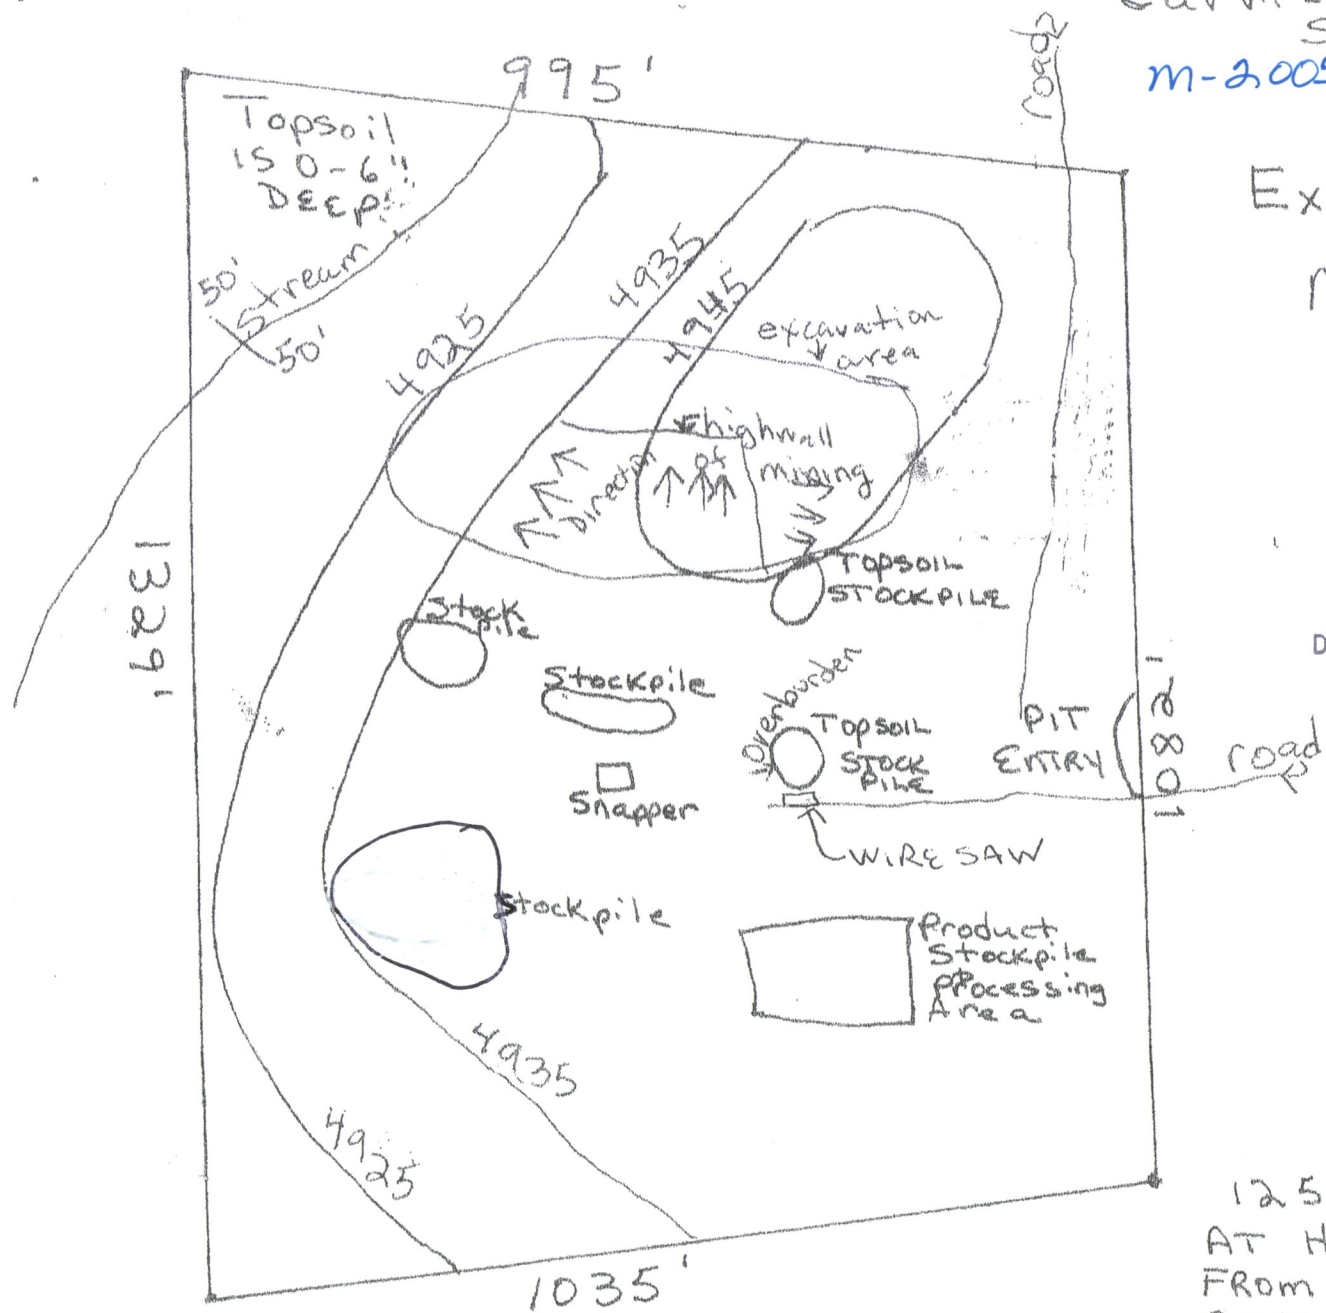 road
M-2005
Ex
995'
Topsoil
is 0-6"
DEEP
50'
Stream
50'
4925
4935
4945
excavation
area
highwall
Direction
of
mining
Topsoil
STOCKPILE
Stock
pile
Stockpile
Overburden
Topsoil
STOCK
PILE
Snapper
WIRE SAW
PIT
ENTRY
road
1329'
1280'
Stockpile
Product
Stockpile
Processing
Area
4935
4925
1035'
125
AT H
FROM